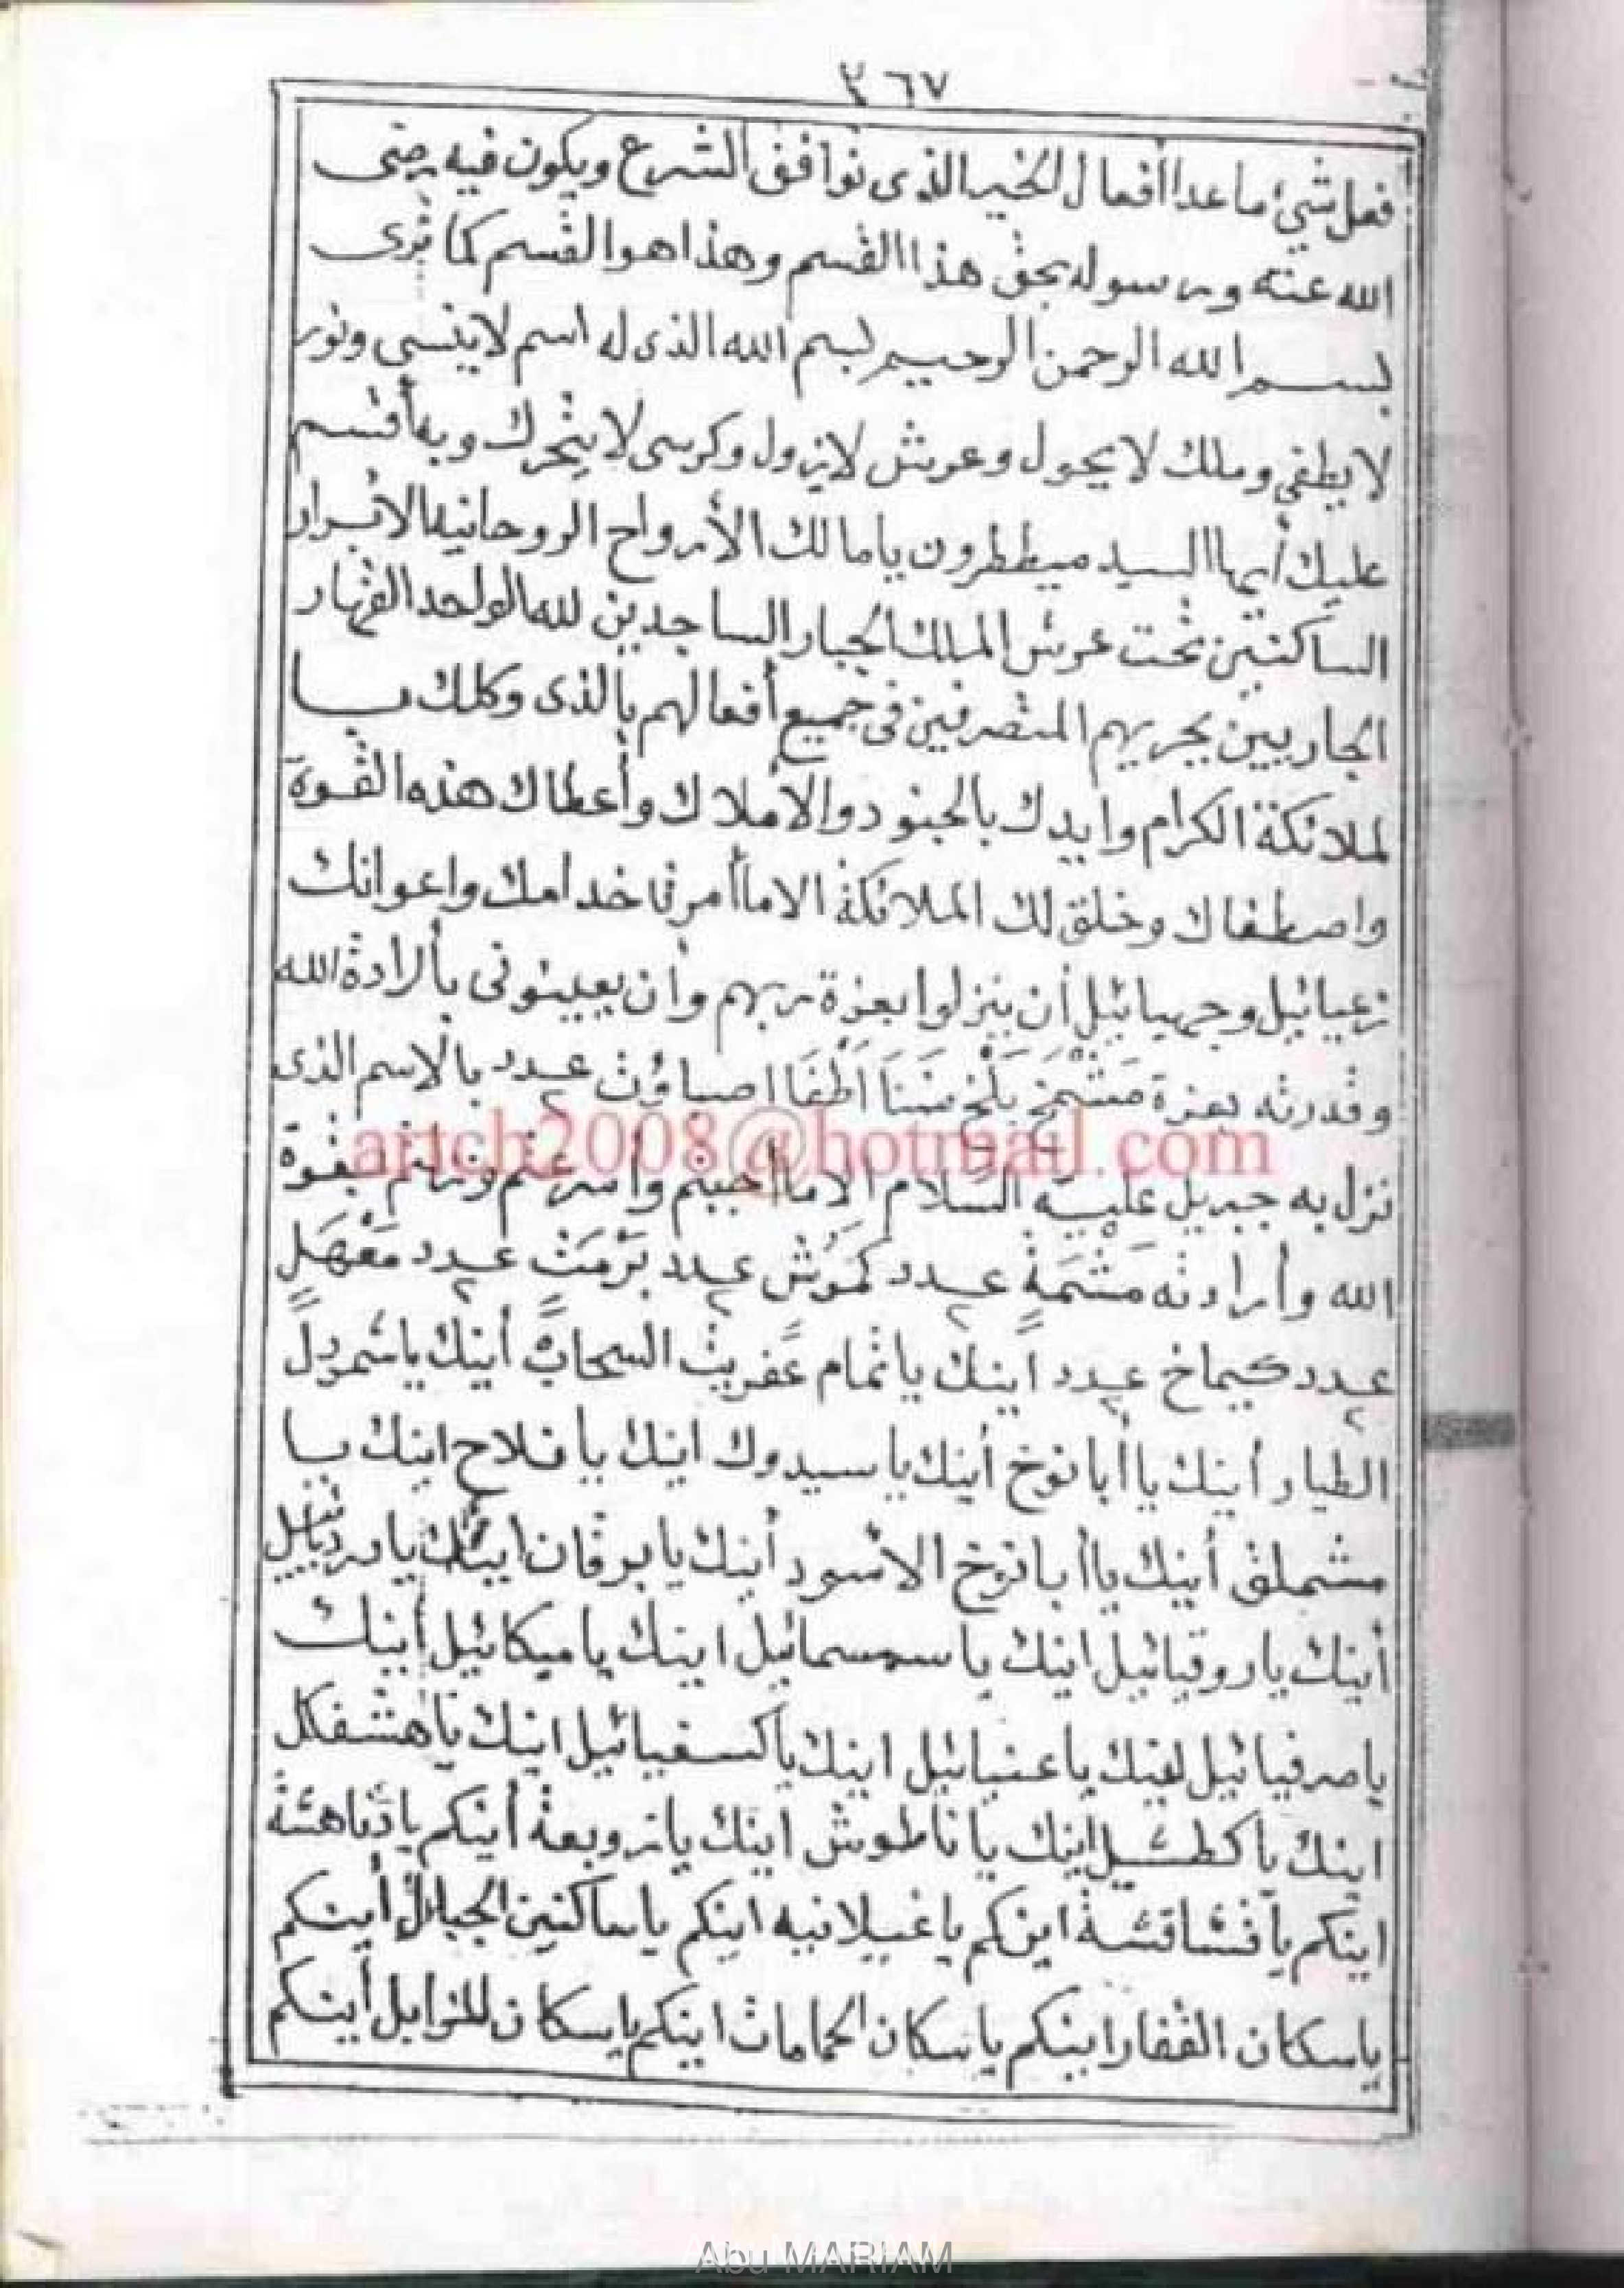 ٣٦٧
فعل شيئ ماعدا أفعال الخير الذى توافق الشرع ويكون فيه رضى
الله عنه ورسوله بحق هذا القسم وهذا هو القسم كما ترى
بسم الله الرحمن الرحيم بسم الله الذى له اسم لاينسى ونور
لايطفى وملك لايحول وعرش لايزول وكرسى لايتحرك وبه أقسم
عليك أيها السيد ميططرون يامالك الأرواح الروحانيه الابرار
الساكنين تحت عرش الملك الجبار الساجدين لله الواحد القهار
الجاريين بجريهم المتصرفين فى جميع أفعالهم بالذى وكلك بـا
لملائكة الكرام وايدك بالجنود والأملاك وأعطاك هذه القوة
واصطفاك وخلق لك الملائكة الا ماأمرت خدامك واعوانك
زعيائيل وجهيائيل أن ينزلوا بعزة ربهم وأن يعينونى بأرادة الله
وقدرته بعزة بالاسم الذى
artch2008@hotmail.com
نزل به جبريل عليه السلام الا ماأجبتم وأسرعتم ونزلتم بقوة
الله وأرادته
كيماخ أينك ياتمام عفريت السحاب أينك ياشمردل
الطيار أينك ياأبانوخ أينك ياسيدوك اينك يافلاح اينك يـا
مشملق أينك ياأبانوخ الاسود أينك يابرقان اينك يادرديائيل
أينك ياروقيائيل اينك ياسمسمائيل اينك ياميكائيل أينك
ياصرفيائيل اينك ياعنيائيل اينك ياكسفيائيل اينك ياهشفكل
اينك ياكطشيل اينك ياناطوش اينك يازوبعة أينكم يادناهشة
اينكم يافشاقشة اينكم ياغيلانيه اينكم ياساكنين الجبال أينكم
ياسكان القفار اينكم ياسكان الحمامات اينكم ياسكان المزابل أينكم
Abu MARIAM